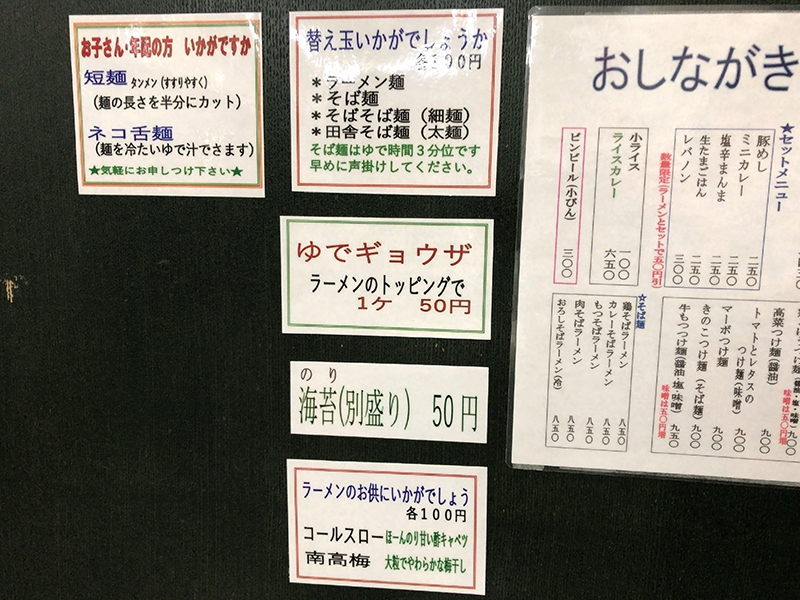 お子さん・年配の方 いかがですか
短麺 タンメン(すすりやすく)
(麺の長さを半分にカット)
ネコ舌麺
(麺を冷たいゆで汁でさます)
★気軽にお申しつけ下さい★
替え玉いかがでしょうか
各100円
＊ラーメン麺
＊そば麺
＊そばそば麺（細麺）
＊田舎そば麺（太麺）
そば麺はゆで時間３分位です
早めに声掛けしてください。
ゆでギョウザ
ラーメンのトッピングで
１ケ 50円
のり
海苔(別盛り) 50円
ラーメンのお供にいかがでしょう
各100円
コールスロー ほーんのり甘い酢キャベツ
南高梅 大粒でやわらかな梅干し
おしながき
★セットメニュー
豚めし 二五〇
ミニカレー 二五〇
塩辛まんま 二五〇
生たまごはん 二五〇
レバノン 三〇〇
数量限定(ラーメンとセットで五〇円引)
小ライス 一〇〇
ライスカレー 六五〇
ビンビール(小びん) 三〇〇
高菜つけ麺(醤油) 九〇〇
トマトとレタスの
つけ麺(味噌) 九〇〇
マーボつけ麺 九〇〇
きのこつけ麺(そば麺) 九〇〇
牛もつつけ麺(醤油・塩・味噌) 九五〇
味噌は五〇円増
☆そば麺
鶏そばラーメン 八五〇
カレーそばラーメン 八五〇
もつそばラーメン 八五〇
肉そばラーメン 八五〇
おろしそばラーメン(冷) 八五〇